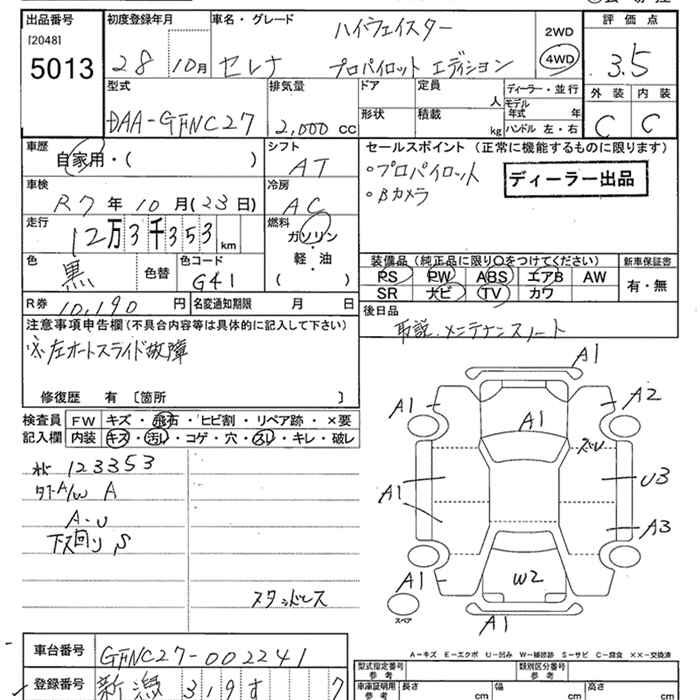 出品番号
[2048]
5013
初度登録年月
28 10月
車名・グレード
ハイウェイスター
セレナ プロパイロット エディション
2WD
4WD
評価点
3.5
外装 内装
C C
型式
DAA-GFNC27
排気量
2,000 cc
ドア 定員
人
形状 積載
kg
ディーラー・並行
モデル
年式 年
ハンドル 左・右
車歴
自家用・( )
シフト
AT
車検
R7年10月(23日)
冷房
AC
走行
12万3千353km
燃料
ガソリン
・
軽・油
( )
色
黒
色替
色コード
G41
セールスポイント (正常に機能するものに限ります)
・プロパイロット
・Bカメラ
ディーラー出品
装備品 (純正品に限り○をつけてください)
PS PW ABS エアB AW
SR ナビ TV カワ
新車保証書
有・無
R券 10,190円
名変通知期限 月 日
後日品
取説.メンテナンスノート
注意事項申告欄(不具合内容等は具体的に記入して下さい)
※左オートスライド故障
修復歴 有 〔箇所 〕
検査員
記入欄
FW キズ・飛石・ヒビ割・リペア跡・×要
内装 キズ・汚レ・コゲ・穴・スレ・キレ・破レ
123353
A/W A
A・U
下ス回り S
スタッドレス
A1
A1
A2
A1
ズレ
U3
A1
A3
A1
W2
A1
スペア
A−キズ E−エクボ U−凹み W−補修跡 S−サビ C−腐食 ××−交換済
車台番号
GFNC27-002241
登録番号
新潟 319 す 7
型式指定番号
参考
類別区分番号
参考
車庫証明用
参考
長さ cm 幅 cm 高さ cm